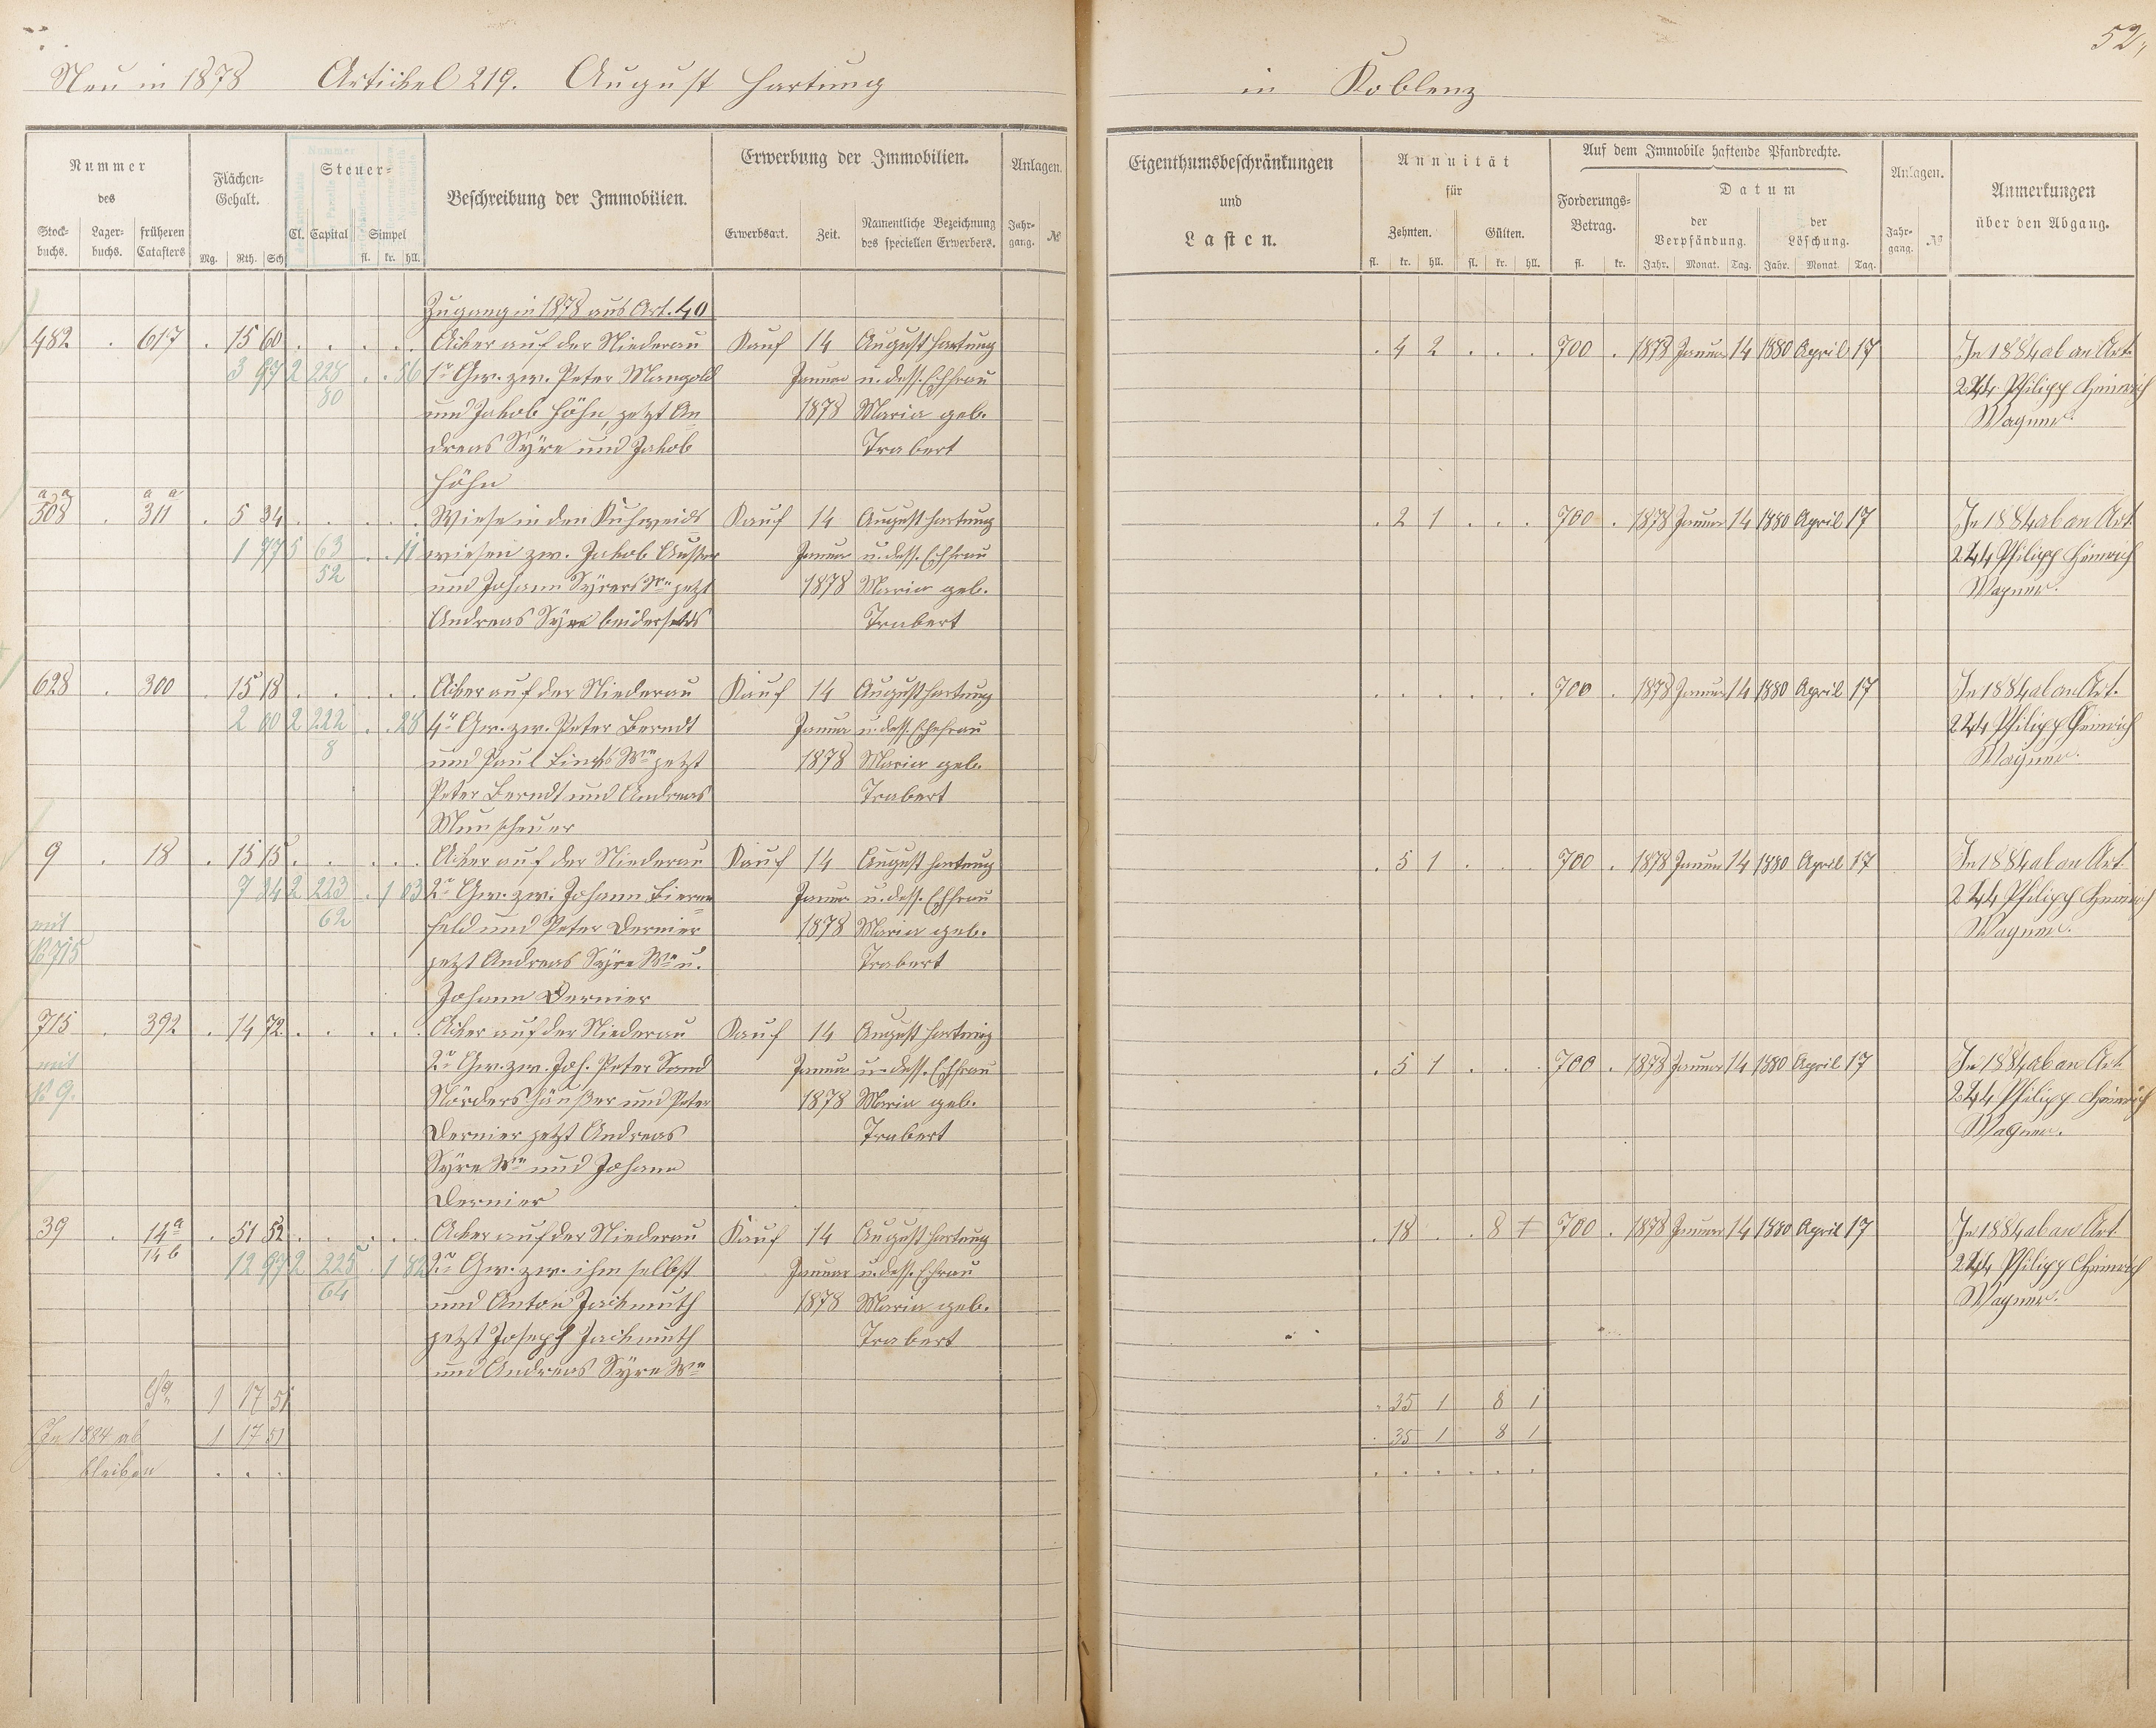 52,
Neu in 1878 Artickel 219. August Hartung in Koblenz
Nummer des
Stockbuchs. Lagerbuchs. früheren Catasters
Flächen-Gehalt.
Mg. Rth. Sch
Steuer-
Cl. Capital Simpel
fl. kr. hll.
Beschreibung der Immobilien.
Erwerbung der Immobilien.
Erwerbsart. Zeit. Namentliche Bezeichnung des speciellen Erwerbers.
Anlagen.
Jahrgang. №
Eigenthumsbeschränkungen und Lasten.
Annuität für
Zehnten. Gülten.
fl. kr. hll. fl. kr. hll.
Auf dem Immobile haftende Pfandrechte.
Forderungs-Betrag.
fl. kr.
Datum
der Verpfändung. der Löschung.
Jahr. Monat. Tag. Jahr. Monat. Tag.
Anlagen.
Jahrgang. №
Anmerkungen über den Abgang.
Zugang in 1878 aus Art. 40
482 . 617 . 15 60 . . . . . Acker auf der Niederau Kauf 14 August Hartung . 4 2 . . . 700 . 1878 Januar 14 1880 April 17 In 1884 ab an Art.
3 97 2 228 . . 56 1r Gw. zw. Peter Mangold Januar u. dess. Ehfrau 244 Philipp Heinrich
80 und Jakob Höhn, jetzt An= 1878 Maria geb. Wagner.
dreas Syre und Jakob Trabert
Höhn
a a a a
308 . 311 . 5 34 . . . . . Wiese in den Kuhweids Kauf 14 August Hartung . 2 1 . . . 700 . 1878 Januar 14 1880 April 17 In 1884 ab an Art.
1 77 5 63 . . 11 wiesen zw. Jakob Januar u. dess. Ehfrau 244 Philipp Heinrich
52 und Johann Syrers Wn jetzt 1878 Maria geb. Wagner.
Andreas Syre beiderseits Trabert
628 . 300 . 15 18 . . . . . Acker auf der Niederau Kauf 14 August Hartung . . . . . . 700 . 1878 Januar 14 1880 April 17 In 1884 ab an Art.
2 00 2 222 . . 28 4r Gw. zw. Peter Berndt Januar u. dess. Ehefrau 244 Philipp Heinrich
8 und Paul Wn jetzt 1878 Maria geb. Wagner.
Peter Berndt und Andreas Trabert
Munscheuer
9 . 18 . 15 15 . . . . . Acker auf der Niederau Kauf 14 August Hartung . 5 1 . . . 700 . 1878 Januar 14 1880 April 17 In 1884 ab an Art.
7 34 2 223 . 1 03 2r Gw. zw. Johann Bieren= Januar u. dess. Ehfrau 244 Philipp Heinrich
mit 62 feld und Peter Dernier 1878 Maria geb. Wagner.
№ 715 jetzt Andreas Syre Wn u. Trabert
Johann Dernier
715 . 392 . 14 72 . . . . . Acker auf der Niederau Kauf 14 August Hartung
mit 2r Gw. zw. Joh. Peter Sand Januar u. dess. Ehfrau . 5 1 . . . 700 . 1878 Januar 14 1880 April 17 In 1884 ab an Art.
№ 9. Nördershäußer und Peter 1878 Maria geb. 244 Philipp Heinrich
Dernier jetzt Andreas Trabert Wagner.
Syre Wn und Johann
Dernier
39 . 14a . 51 52 . . . . . Acker auf der Niederau Kauf 14 August Hartung . 18 . . 8 1 700 . 1878 Januar 14 1880 April 17 In 1884 ab an Art.
14b 12 97 2 225 . 1 82 2r Gw. zw. ihm selbst Januar u. dess. Ehfrau 244 Philipp Heinrich
64 und Anton Jackmuth 1878 Maria geb. Wagner.
jetzt Joseph Jackmuth Trabert
und Andreas Syre Wn
Sa 1 17 51 . 35 1 8 1
In 1884 ab 1 17 51 . 35 1 8 1
bleiben . . . . . . . . .